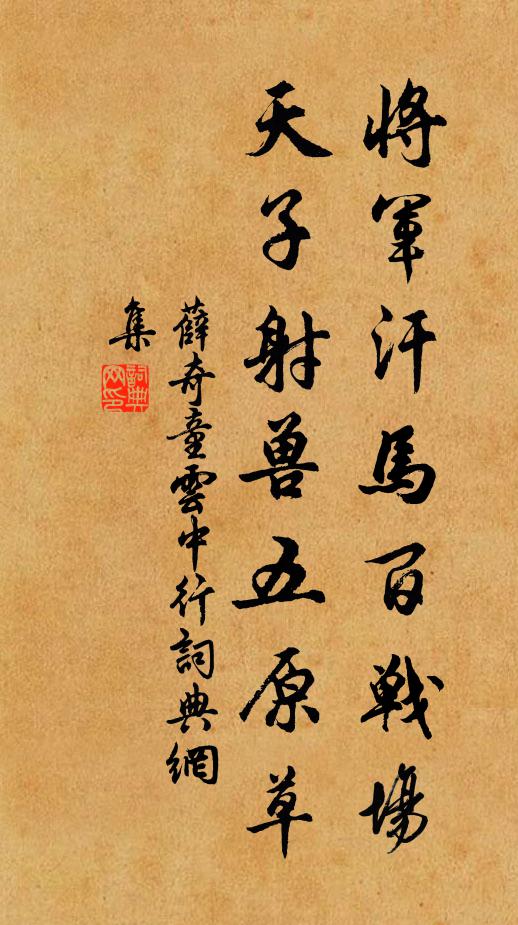 將軍汗馬百戰場
天子射兽五原草
薛奇童雲中行詞典網
集
詞典網印